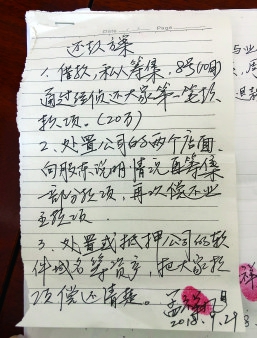 还款方案
1、借款，私人筹集，8号(10日)
通过经侦还大家第一笔
款项。(20万)
2、处置公司的两个店面，
向股东说明情况再筹集
一部分款项，再次偿还业
主款项
3、处置或抵押公司的软
件域名等资产，把大家款
项偿还清楚。
2018.